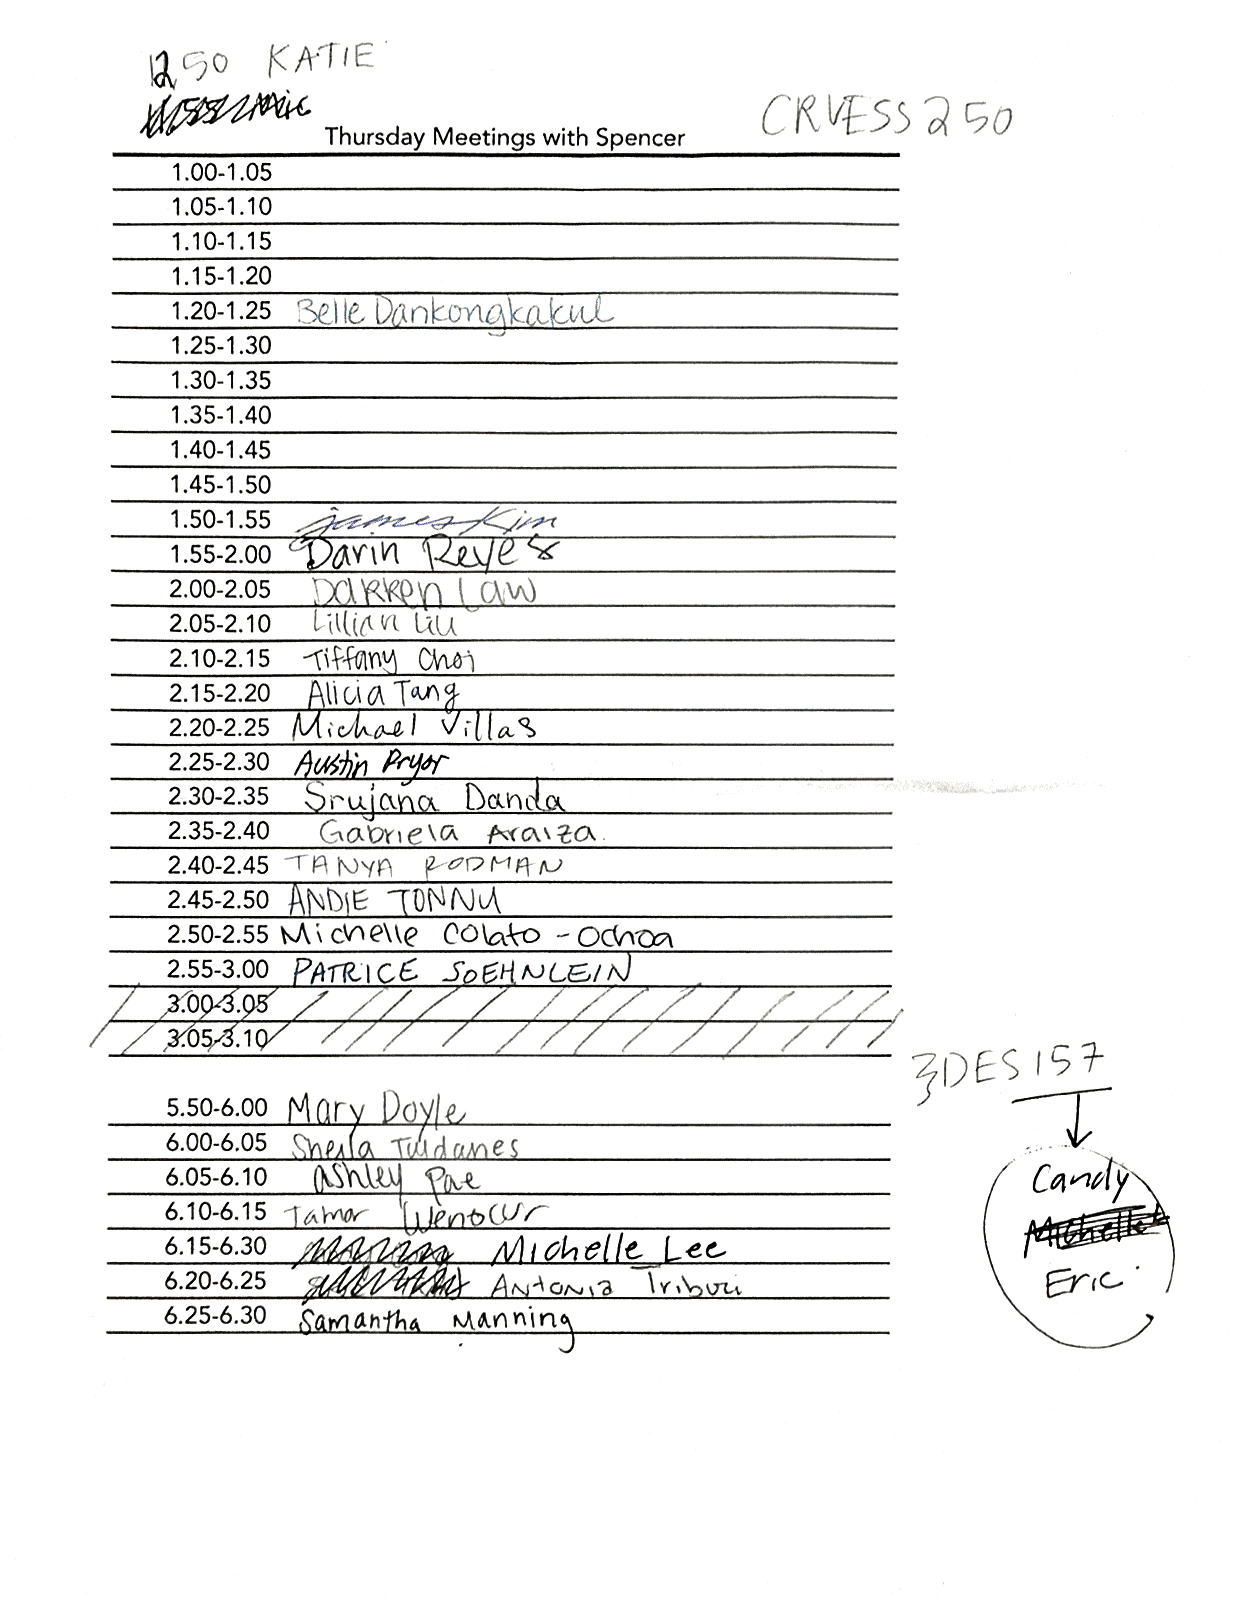 1250 KATIE
CRVESS 250
Thursday Meetings with Spencer
1.00-1.05
1.05-1.10
1.10-1.15
1.15-1.20
1.20-1.25 Belle Dankongkakul
1.25-1.30
1.30-1.35
1.35-1.40
1.40-1.45
1.45-1.50
1.50-1.55 james Kim
1.55-2.00 Darin Reyes
2.00-2.05 Darren Law
2.05-2.10 Lillian Liu
2.10-2.15 Tiffany Choi
2.15-2.20 Alicia Tang
2.20-2.25 Michael Villas
2.25-2.30 Austin Pryor
2.30-2.35 Srujana Danda
2.35-2.40 Gabriela Araiza.
2.40-2.45 TANYA RODMAN
2.45-2.50 ANDIE TONNU
2.50-2.55 Michelle Colato-Ochoa
2.55-3.00 PATRICE SOEHNLEIN
3.00-3.05
3.05-3.10
DES 157
5.50-6.00 Mary Doyle
6.00-6.05 Sheila
6.05-6.10 Ashley Pae
6.10-6.15 Tamar Wenocur
6.15-6.30 Michelle Lee
6.20-6.25 Antonia Triburi
6.25-6.30 Samantha Manning
Candy
Michelle
Eric